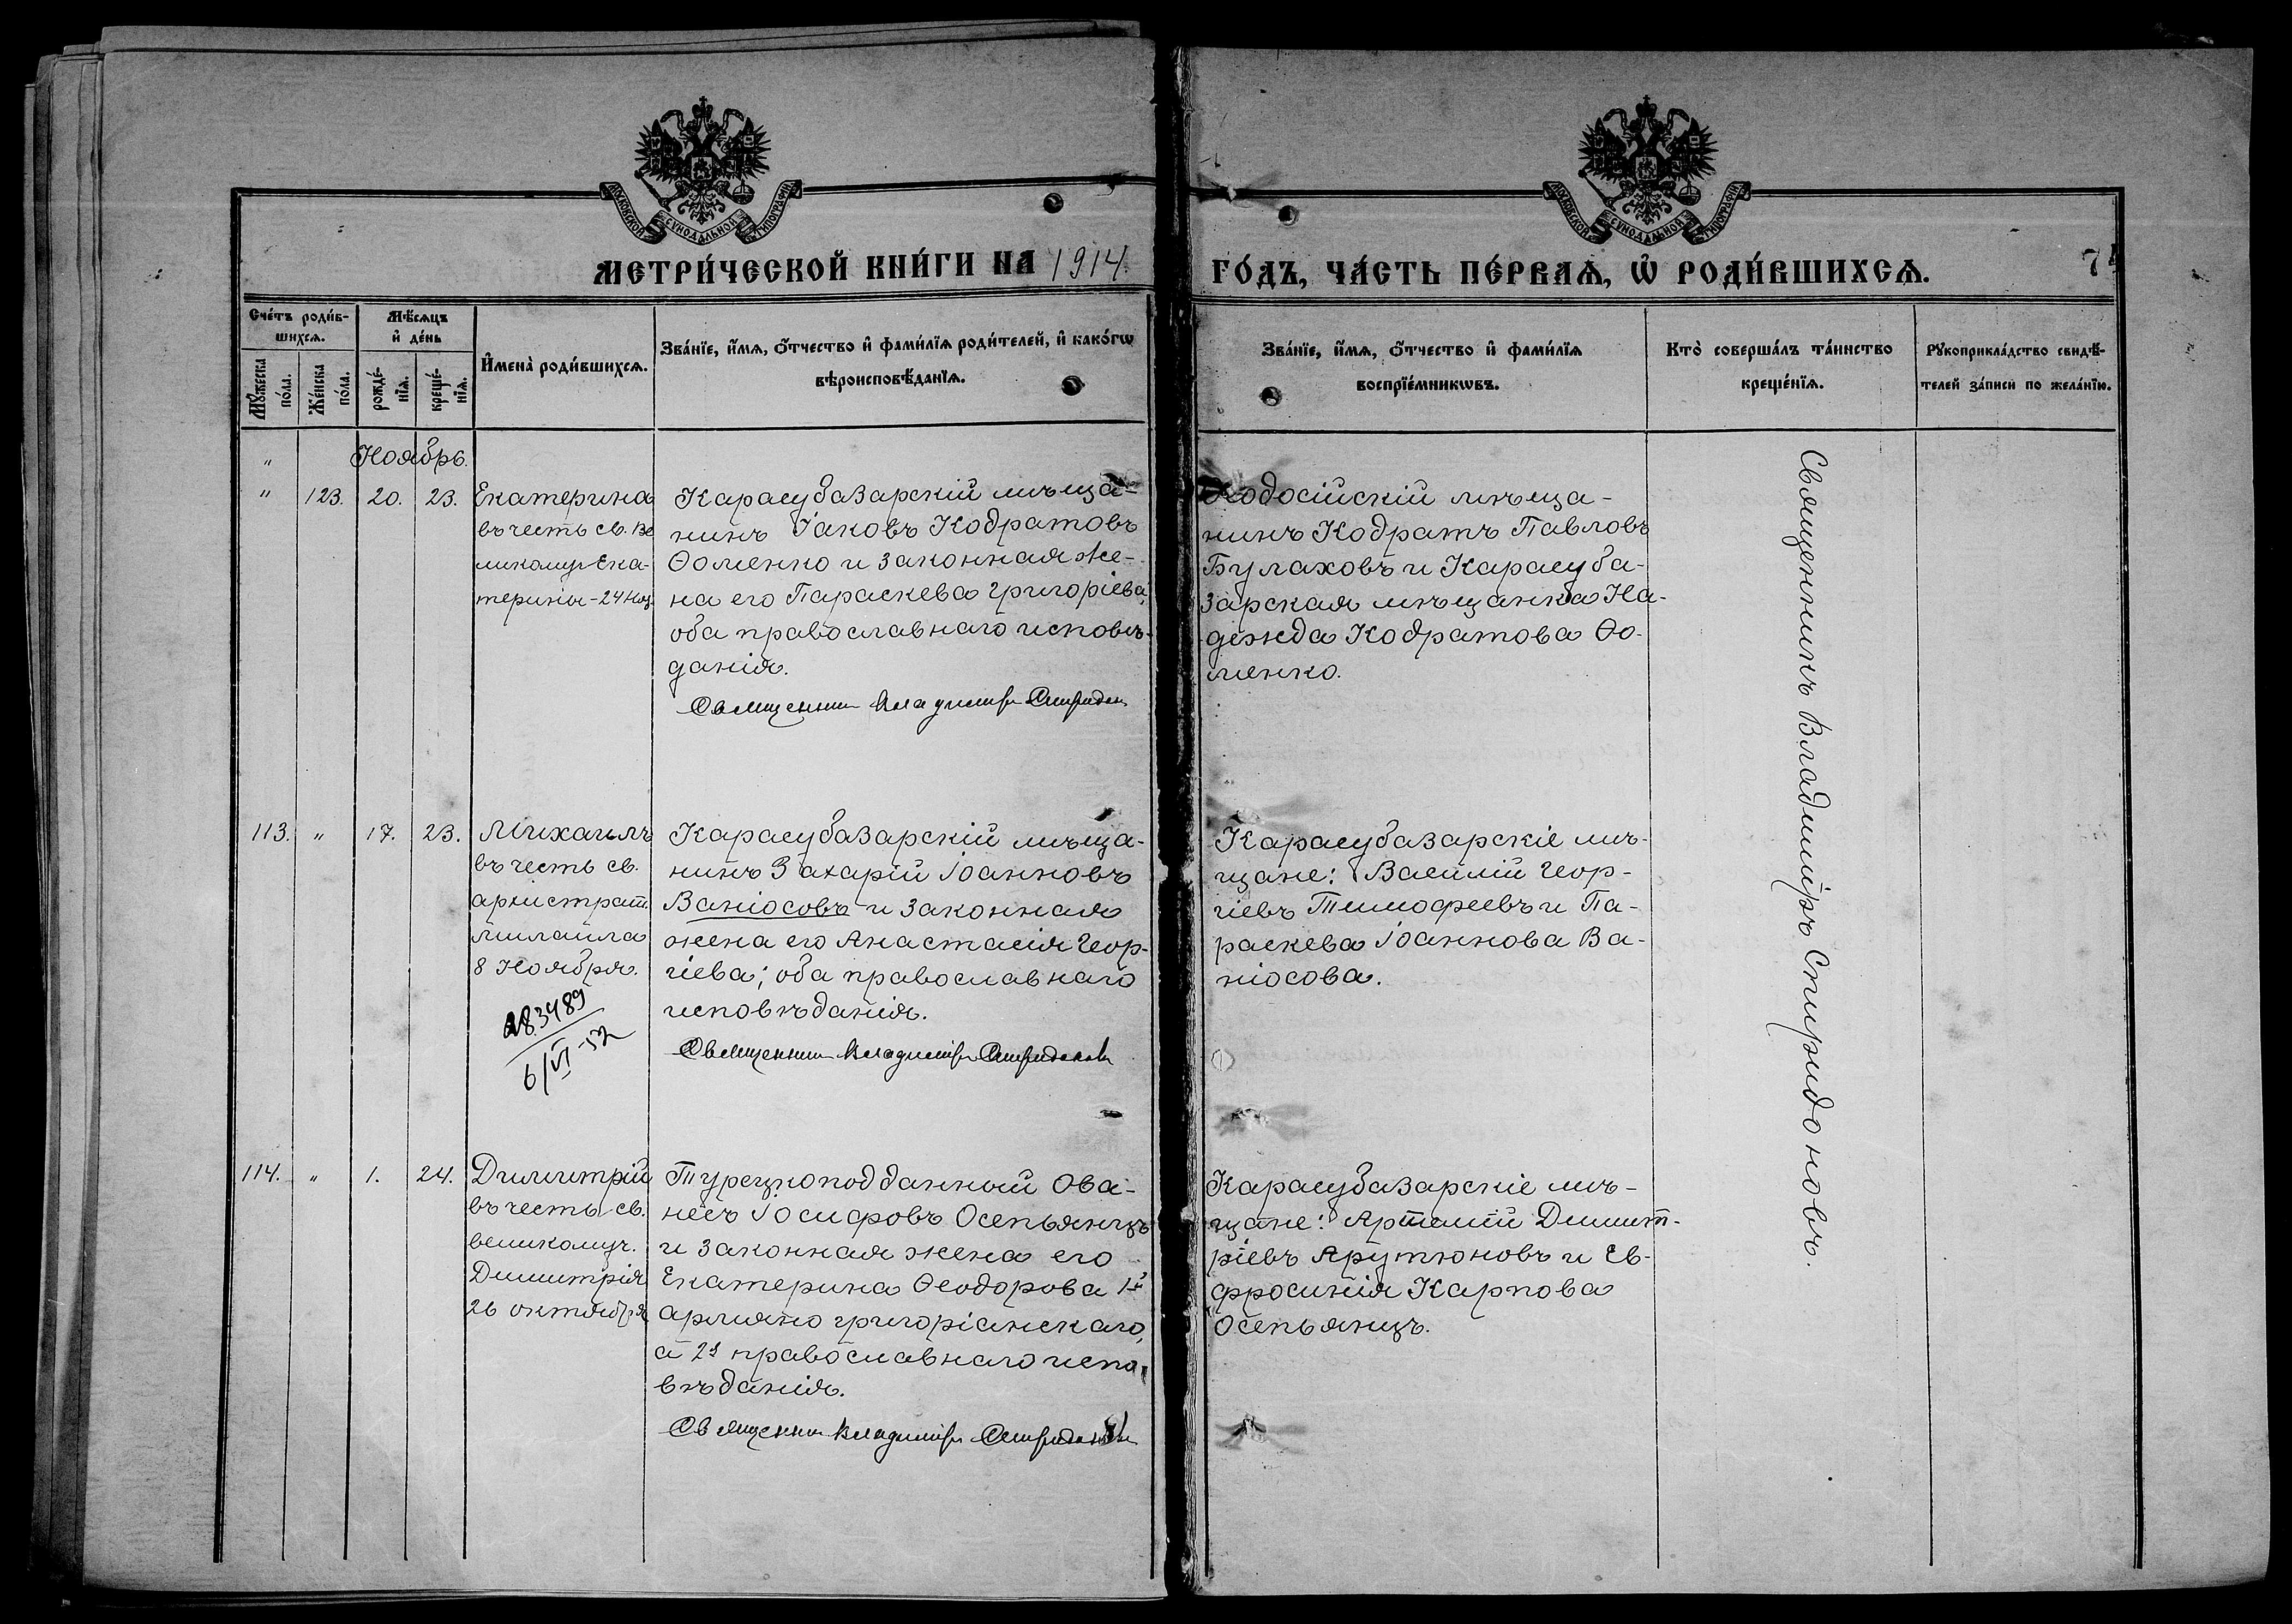 МОСКОВСКОЙ СѴНОДАЛЬНОЙ ТИПОГРАФІИ
МОСКОВСКОЙ СѴНОДАЛЬНОЙ ТИПОГРАФІИ
МЕТРИ́ЧЕСКОЙ КНИ́ГИ НА 1914.
ГО́ДЪ, ЧА́СТЬ ПЕ́РВАѦ, Ѡ҆ РОДИ́ВШИХСѦ.
Сче́тъ роди́в-
шихсѧ.
Мꙋ́жеска
по́ла.
Же́нска
по́ла.
Мѣ́сѧцъ
и҆ де́нь
рожде́-
нїѧ.
креще́-
нїѧ.
И҆мена̀ роди́вшихсѧ.
Зва́нїе, и҆́мѧ, ѻ҆́тчество и҆ фами́лїѧ роди́телей, и҆ како́гѡ
вѣроисповѣ́данїѧ.
Зва́нїе, и҆́мѧ, ѻ҆́тчество и҆ фами́лїѧ
воспрїе́мникѡвъ.
Кто̀ соверша́лъ та́инство
креще́нїѧ.
Рꙋкоприкла́дство свидѣ́-
телей за́писи по жела́нїю.
Ноябрь.
" 123. 20. 23.
Екатерина
въ честь св. ве
ликомуч. Ека-
терины - 24 Ноя.
Карасубазарскій мѣща-
нинъ Іаковъ Кодратовъ
Ѳоменко и законная же-
на его Параскева Григоріева,
оба православнаго исповѣ-
данія.
Священникъ Владиміръ Спиридон
Ѳеодосійскій мѣща-
нинъ Кодратъ Павловъ
Булаховъ и Карасуба-
зарская мѣщанка На-
дежда Кодратова Ѳо-
менко.
113. " 17. 23.
Михаилъ
въ честь св.
архистрат.
Михаила
8 Ноября.
283489
6/VI-52
Карасубазарскій мѣща-
нинъ Захарій Іоанновъ
Ваніосовъ и законная
жена его Анастасія Геор-
гіева; оба православнаго
исповѣданія.
Священникъ Владиміръ Спиридоновъ
Карасубазарскіе мѣ-
щане: Василій Геор-
гіевъ Тимофеевъ и Па-
раскева Іоаннова Ва-
ніосова.
114. " 1. 24.
Димитрій
въ честь св.
великомуч.
Димитрія
26 октября
Турецкоподданный Ова-
несъ Іосифовъ Осепьянцъ
и законная жена его
Екатерина Ѳеодорова 1й
армяно григоріанскаго,
а 2я православнаго испо-
вѣданія.
Священникъ Владиміръ Спиридоновъ
Карасубазарскіе мѣ-
щане: Артемій Димит-
ріевъ Арутюновъ и Ев-
фросинія Карпова
Осепьянцъ.
Священникъ Владиміръ Спиридоновъ.